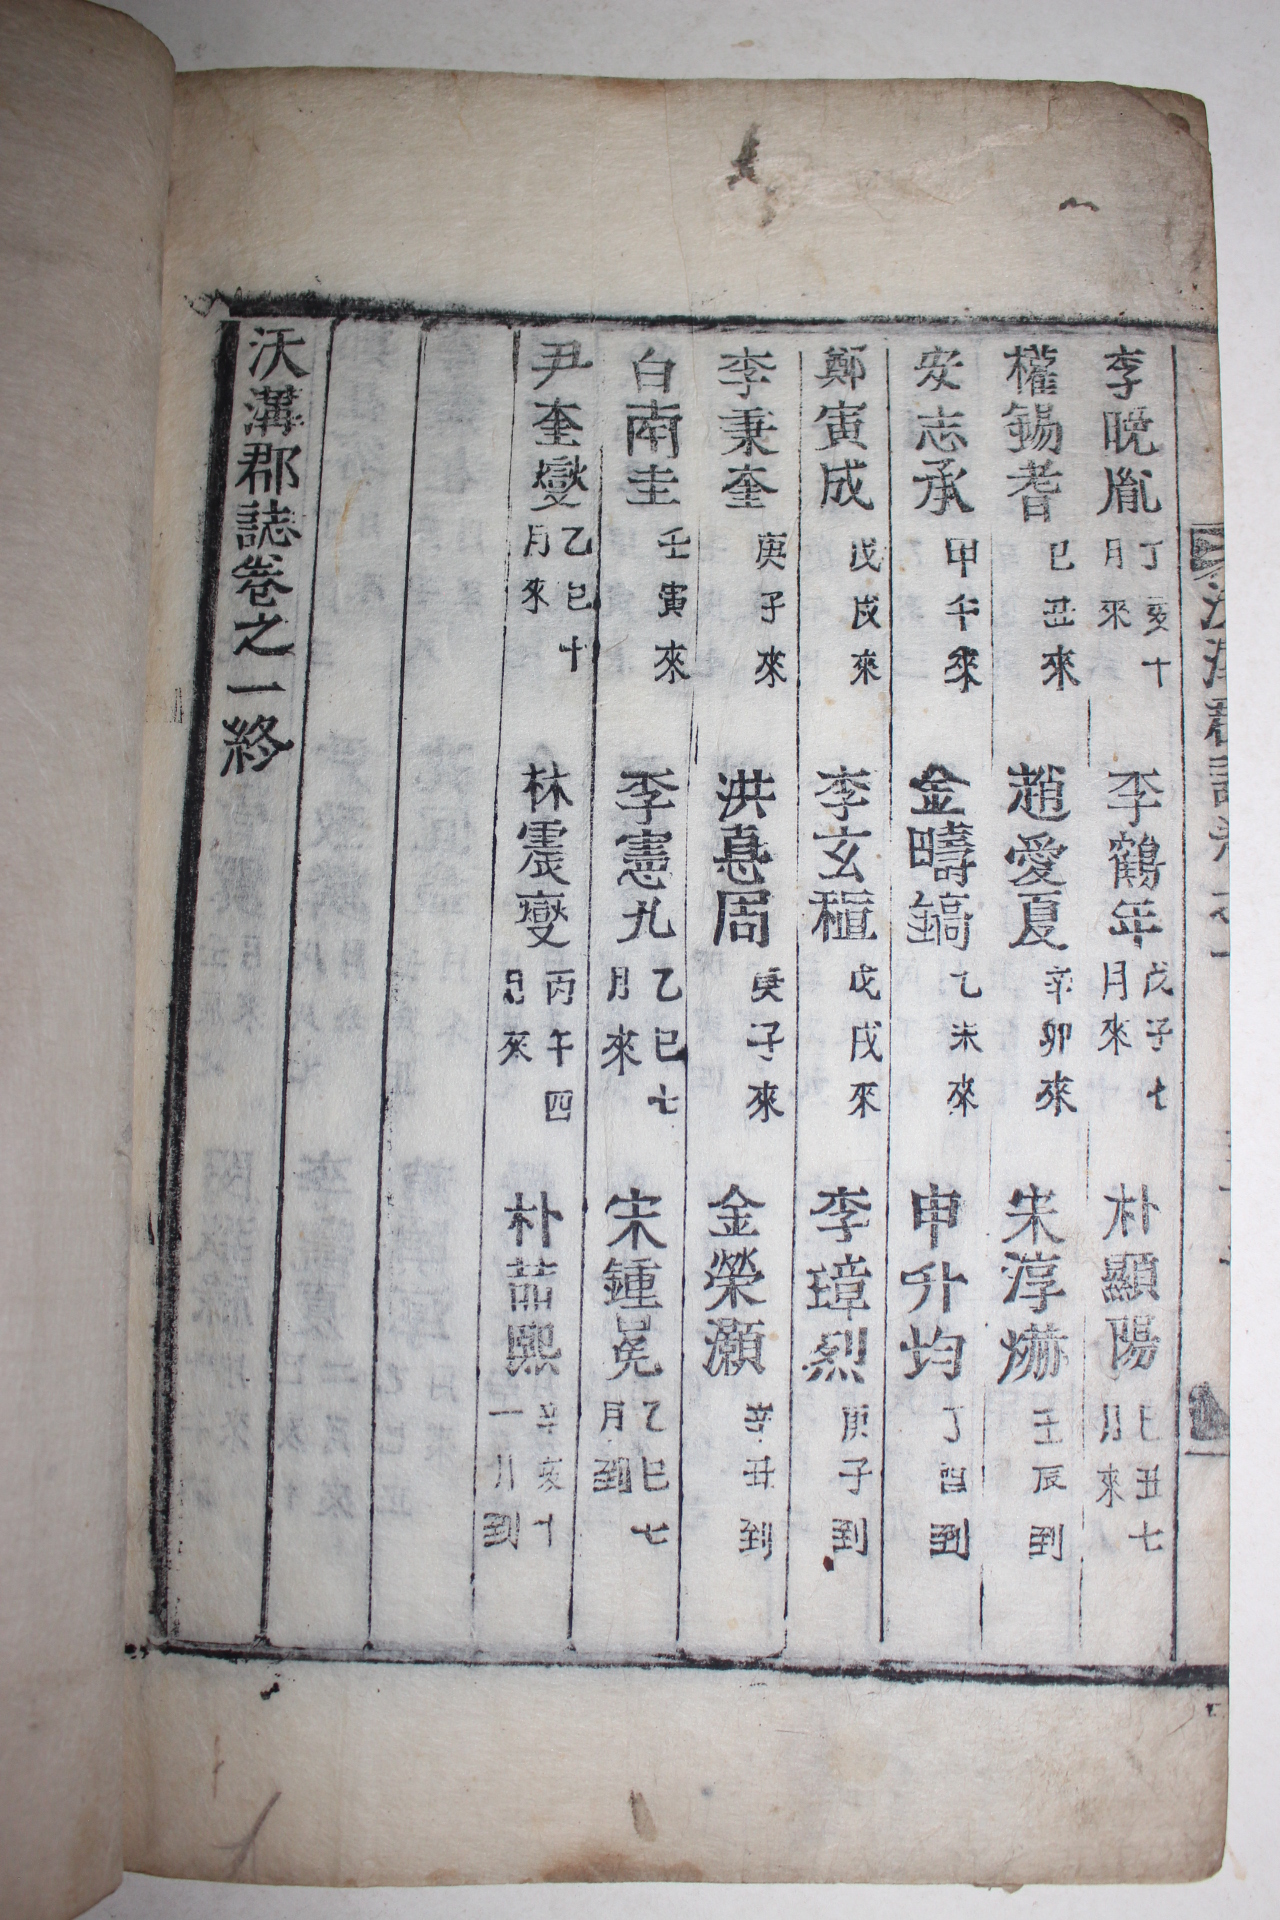 李晩胤 丁亥十月來 李鶴年 戊子七月來 朴顯陽 己丑七月來
權錫耆 己丑來 趙愛夏 辛卯來 朱淳爀 壬辰到
安志承 甲午來 金疇鎬 乙未來 申升均 丁酉到
鄭寅成 戊戌來 李玄稙 戊戌來 李璋烈 庚子到
李秉奎 庚子來 洪悳周 庚子來 金榮灝 辛丑到
白南圭 壬寅來 李憲九 乙巳七月來 宋鍾冕 乙巳七月到
尹奎燮 乙巳十月來 林震燮 丙午四月來 朴喆熙 辛亥十一月到
沃溝郡誌卷之一終